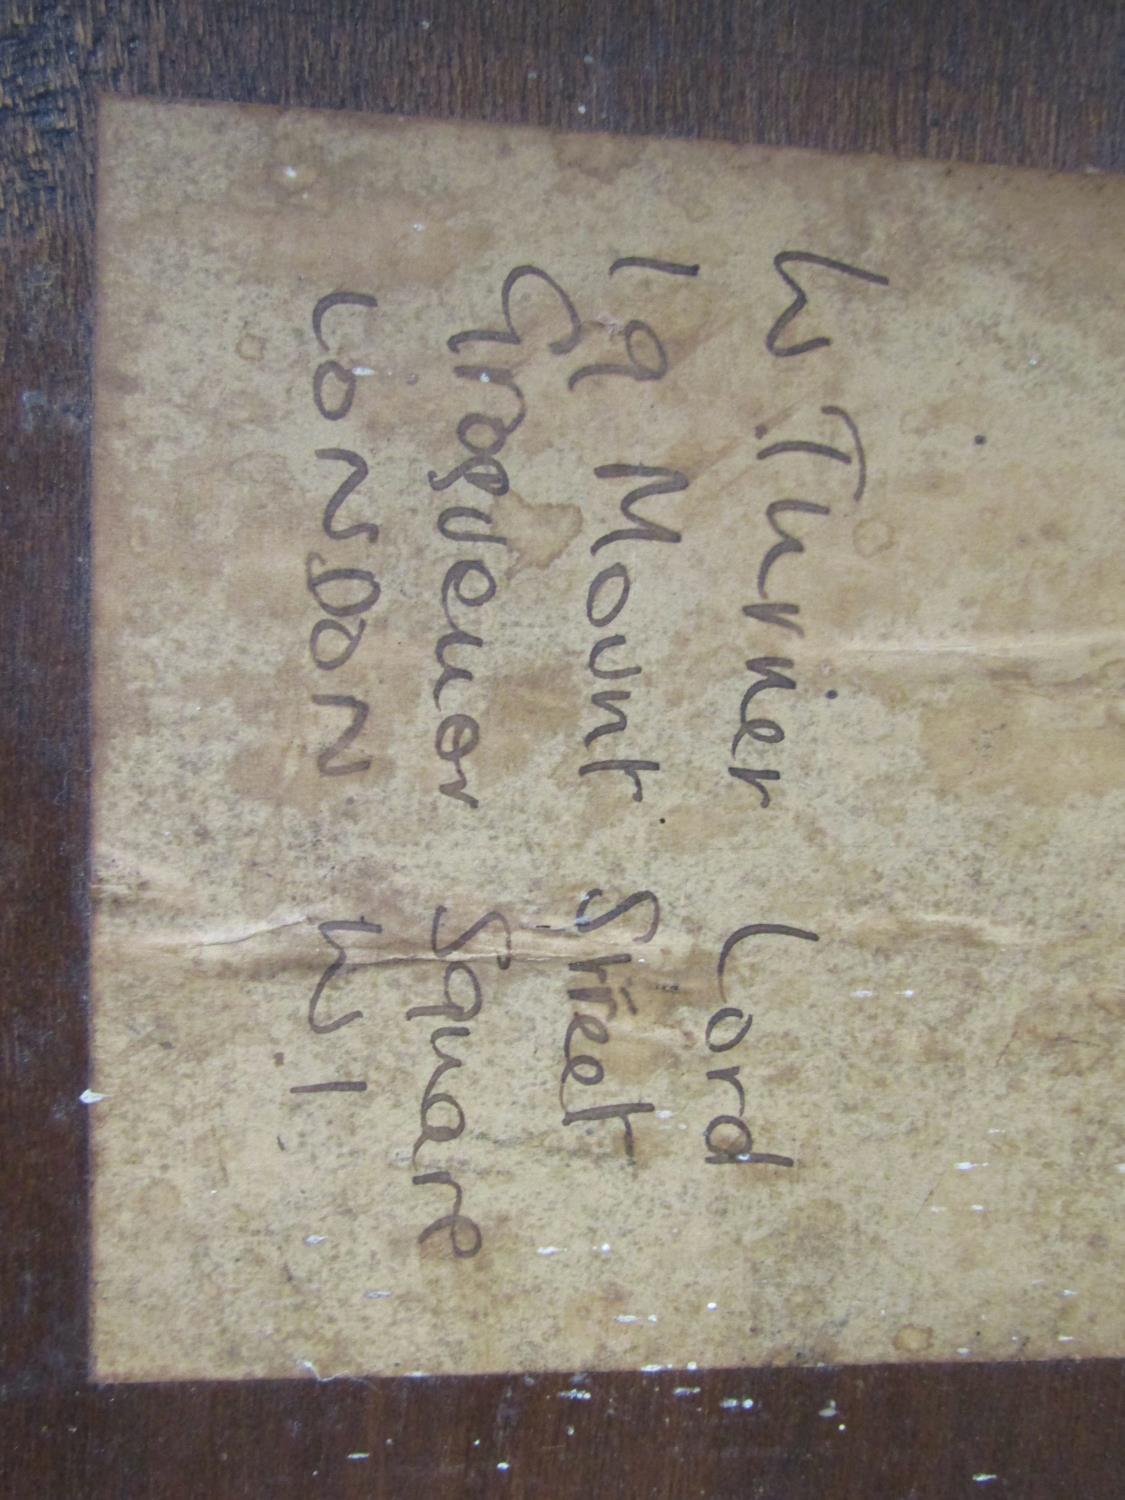 W Turner Lord
19 Mount Street
Grosvenor Square
LONDON W1